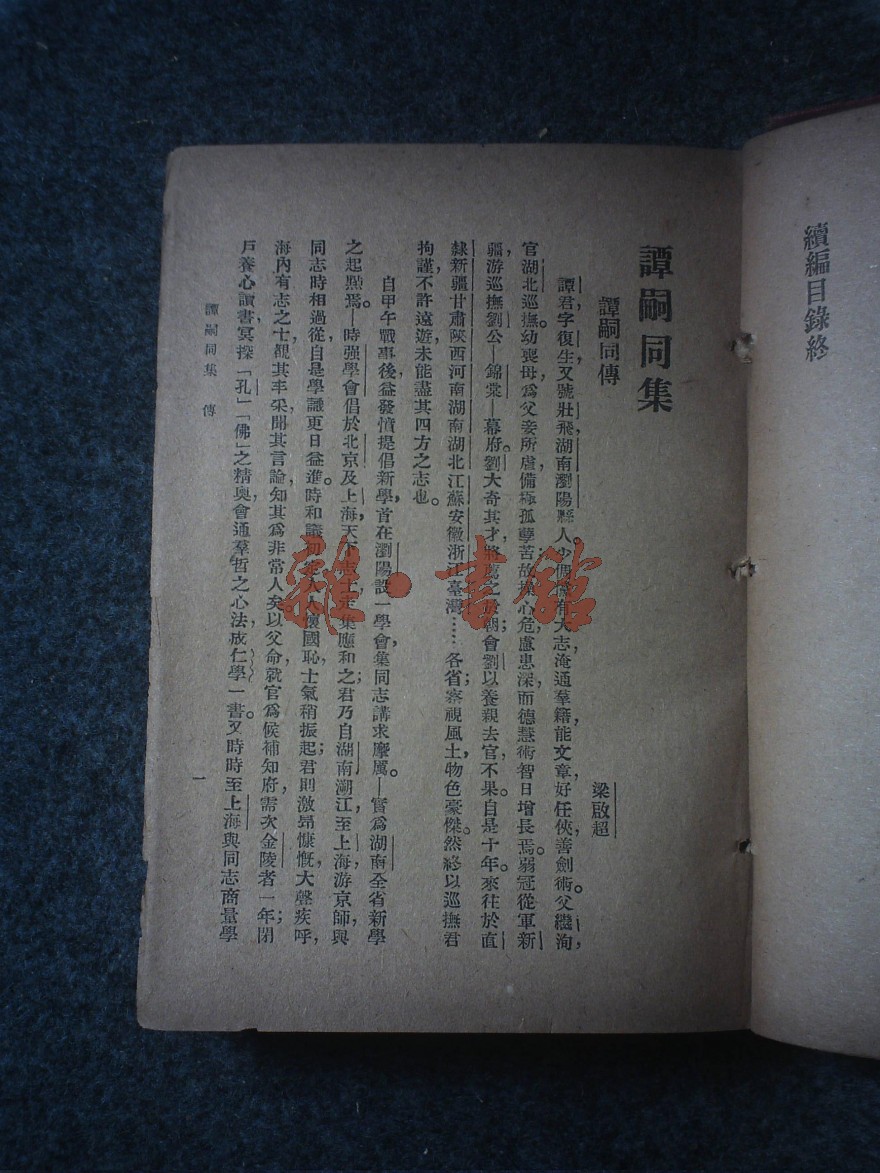 續編目錄終
譚嗣同集
譚嗣同傳
梁啟超
譚君字復生,又號壯飛,湖南瀏陽縣人。少倜儻有大志,淹通羣籍,能文章,好任俠,善劍術。父繼洵,
官湖北巡撫。幼喪母,爲父妾所虐,備極孤孽苦,故操心危,慮患深,而德慧術智日增長焉。弱冠從軍新
疆,游巡撫劉公—錦棠—幕府。劉大奇其才,將薦之於朝;會劉以養親去官,不果。自是十年,來往於直
隸新疆甘肅陝西河南湖南湖北江蘇安徽浙江臺灣……各省,察視風土,物色豪傑。然終以巡撫君
拘謹,不許遠遊,未能盡其四方之志也。
自甲午戰事後,益發憤提倡新學,首在瀏陽設一學會,集同志講求磨厲。—實爲湖南全省新學
之起點焉。—時强學會倡於北京及上海,天下志士走集應和之;君乃自湖南溯江,至上海,游京師,與
同志時相過從,自是學識更日益進。時和議初定,人人懷國恥,士氣稍振起;君則激昂慷慨,大聲疾呼,
海內有志之士,覩其丰采,聞其言論,知其爲非常人矣。以父命就官爲候補知府,需次金陵者一年;閉
戶養心讀書,冥探「孔」「佛」之精奧,會通羣哲之心法,成仁學一書。又時時至上海與同志商量學
譚嗣同集 傳
一
雜·書館